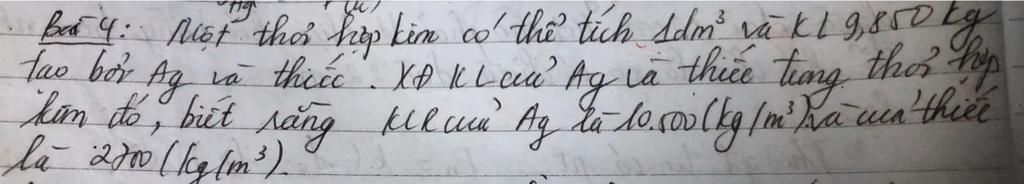 Ag
Bài 4: Một thỏi hợp kim có thể tích 1dm³ và KL 9,850 kg
tạo bởi Ag và thiếc. XĐ KL của Ag và thiếc trong thỏi hợp
kim đó, biết rằng KLR của Ag là 10.500 (kg/m³) và của thiếc
là 2700 (kg/m³).